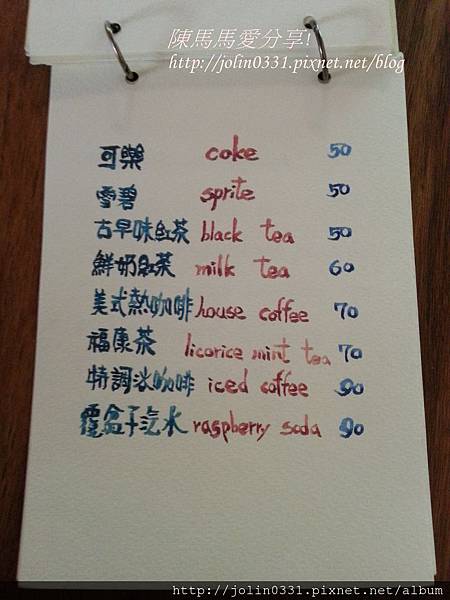 陳馬馬愛分享!
http://jolin0331.pixnet.net/blog
可樂 coke 50
雪碧 sprite 50
古早味紅茶 black tea 50
鮮奶紅茶 milk tea 60
美式熱咖啡 house coffee 70
福康茶 licorice mint tea 70
特調冰咖啡 iced coffee 90
覆盆子汽水 raspberry soda 90
http://jolin0331.pixnet.net/album